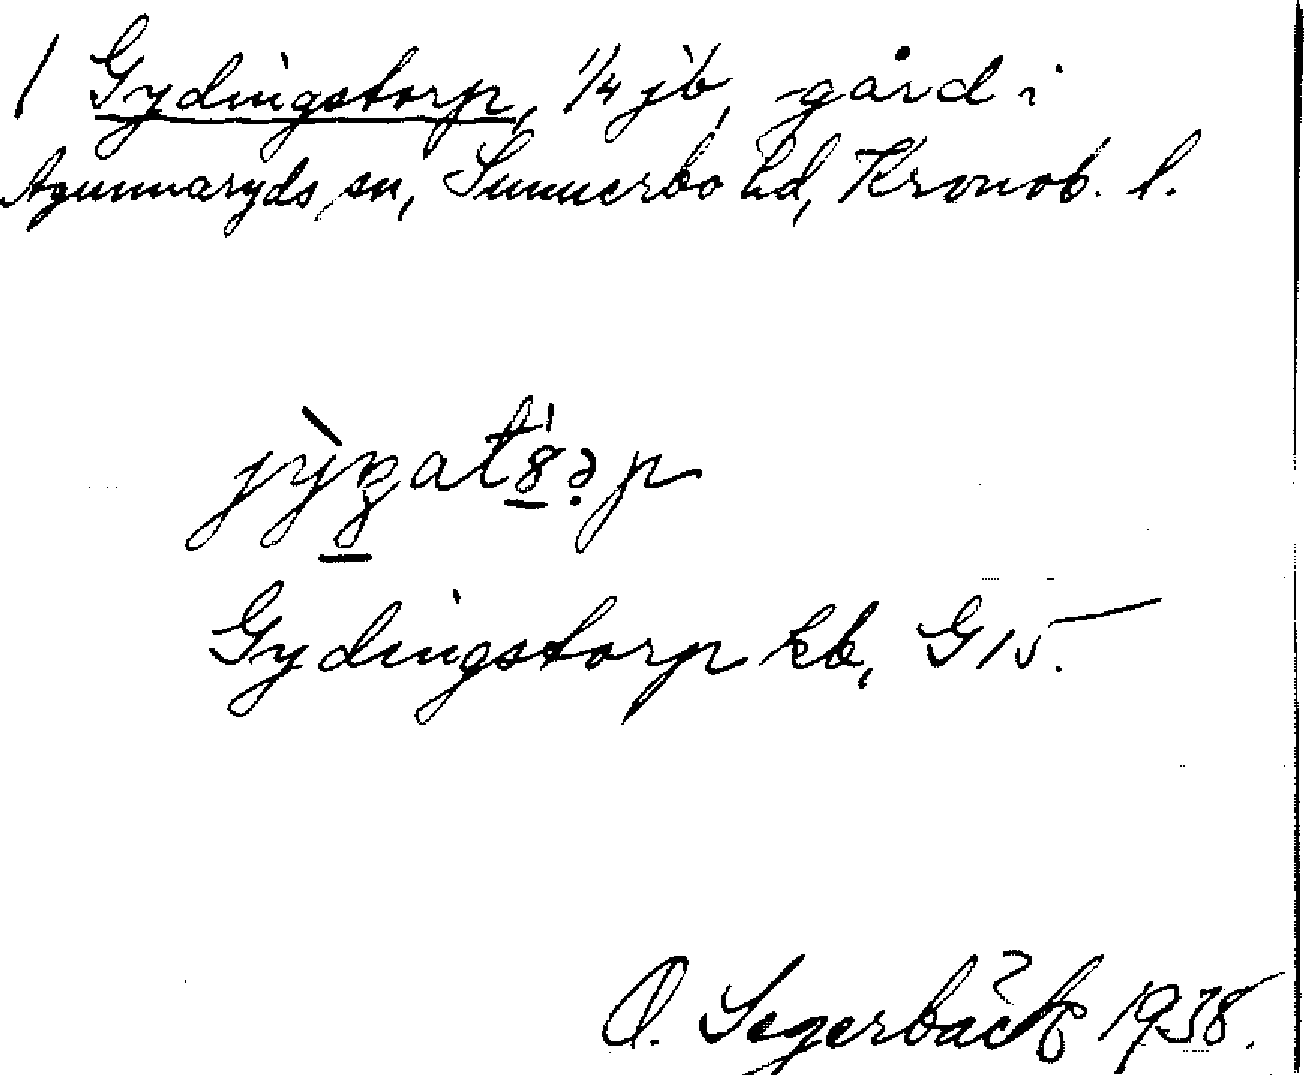 / Gydingstorp, 1/4 jb, gård i
Agunnaryds sn, Sunnerbo hd, Kronob. l.
Gydingstorp kb, G15.
O. Segerbäck 1938.